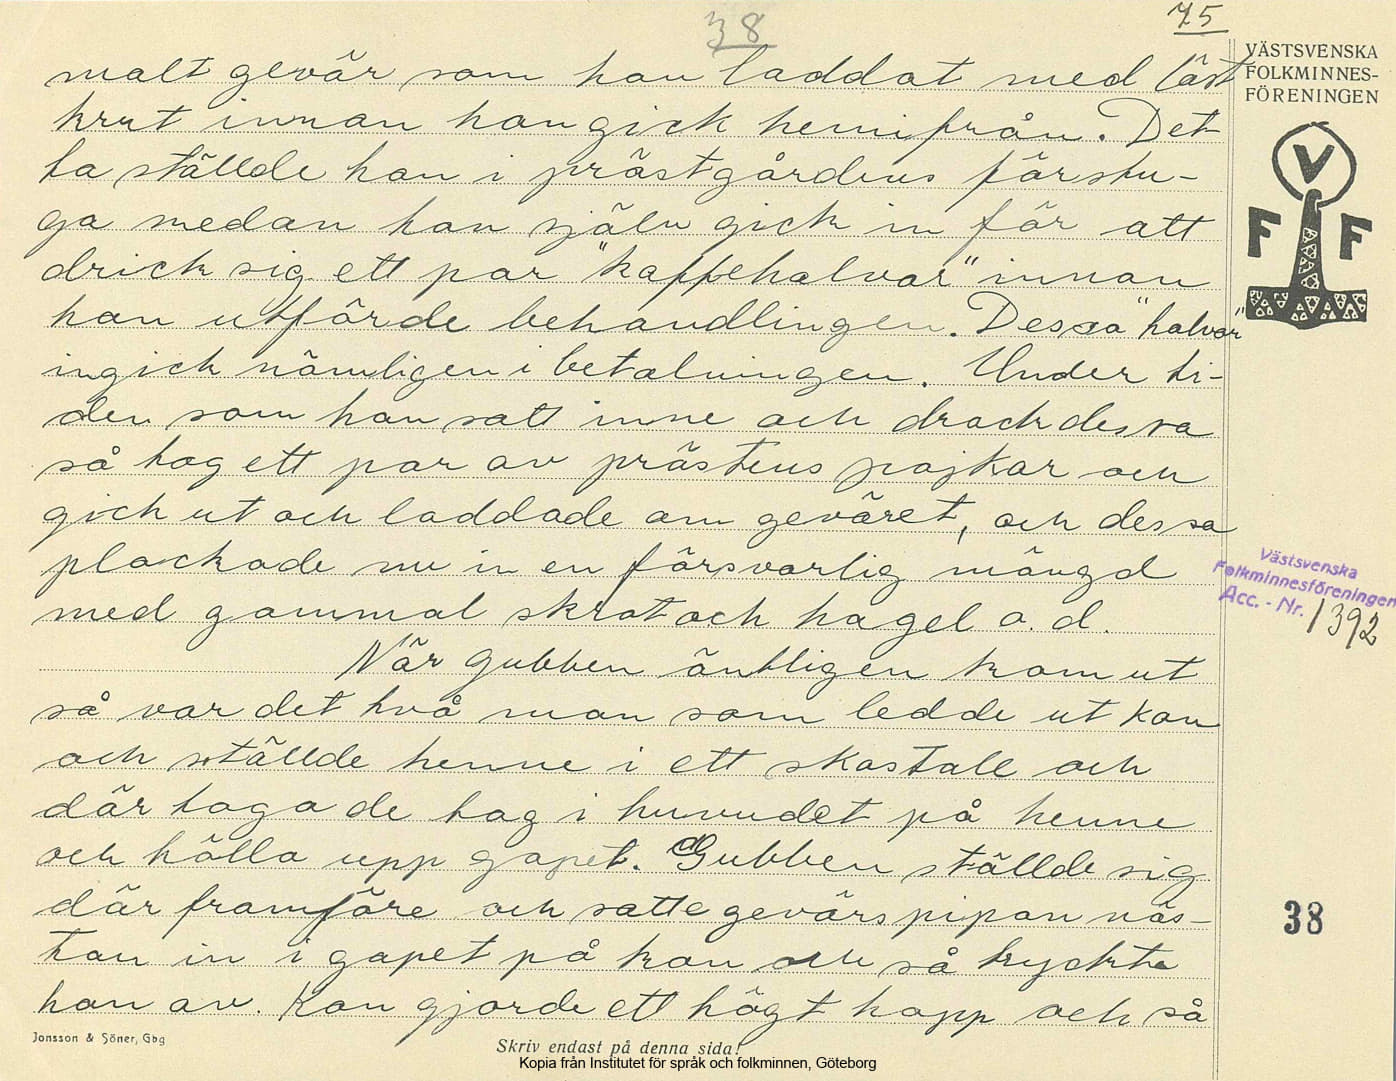 38
75
VÄSTSVENSKA
FOLKMINNES-
FÖRENINGEN
malt gevär som han laddat med löst
krut innan han gick hemifrån. Det-
ta ställde han i prästgårdens förstu-
ga medan han själv gick in för att
drick sig ett par "kaffehalvar" innan
han utförde behandlingen. Dessa "halvar"
ingick nämligen i betalningen. Under ti-
den som han satt inne och drack dessa
så tog ett par av prästens pojkar och
gick ut och laddade om geväret, och dessa
plockade nu in en försvarlig mängd
med gammal skrot och hagel o. d.
När gubben äntligen kom ut
så var det två man som ledde ut kon
och ställde henne i ett skostall och
där toga de tag i huvudet på henne
och hålla upp gapet. Gubben ställde sig
där framföre och satte gevärspipan näs-
tan in i gapet på kon och så tryckte
han av. Kon gjorde ett högt hopp och så
V
F F
Västsvenska
Folkminnesföreningen
Acc. - Nr. 1392
38
Jonsson & Söner, Gbg
Skriv endast på denna sida!
Kopia från Institutet för språk och folkminnen, Göteborg